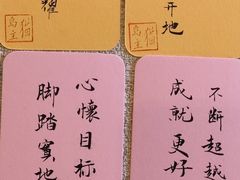 耀
开地
心懷目标
脚踏实地
不断超越
成就更好